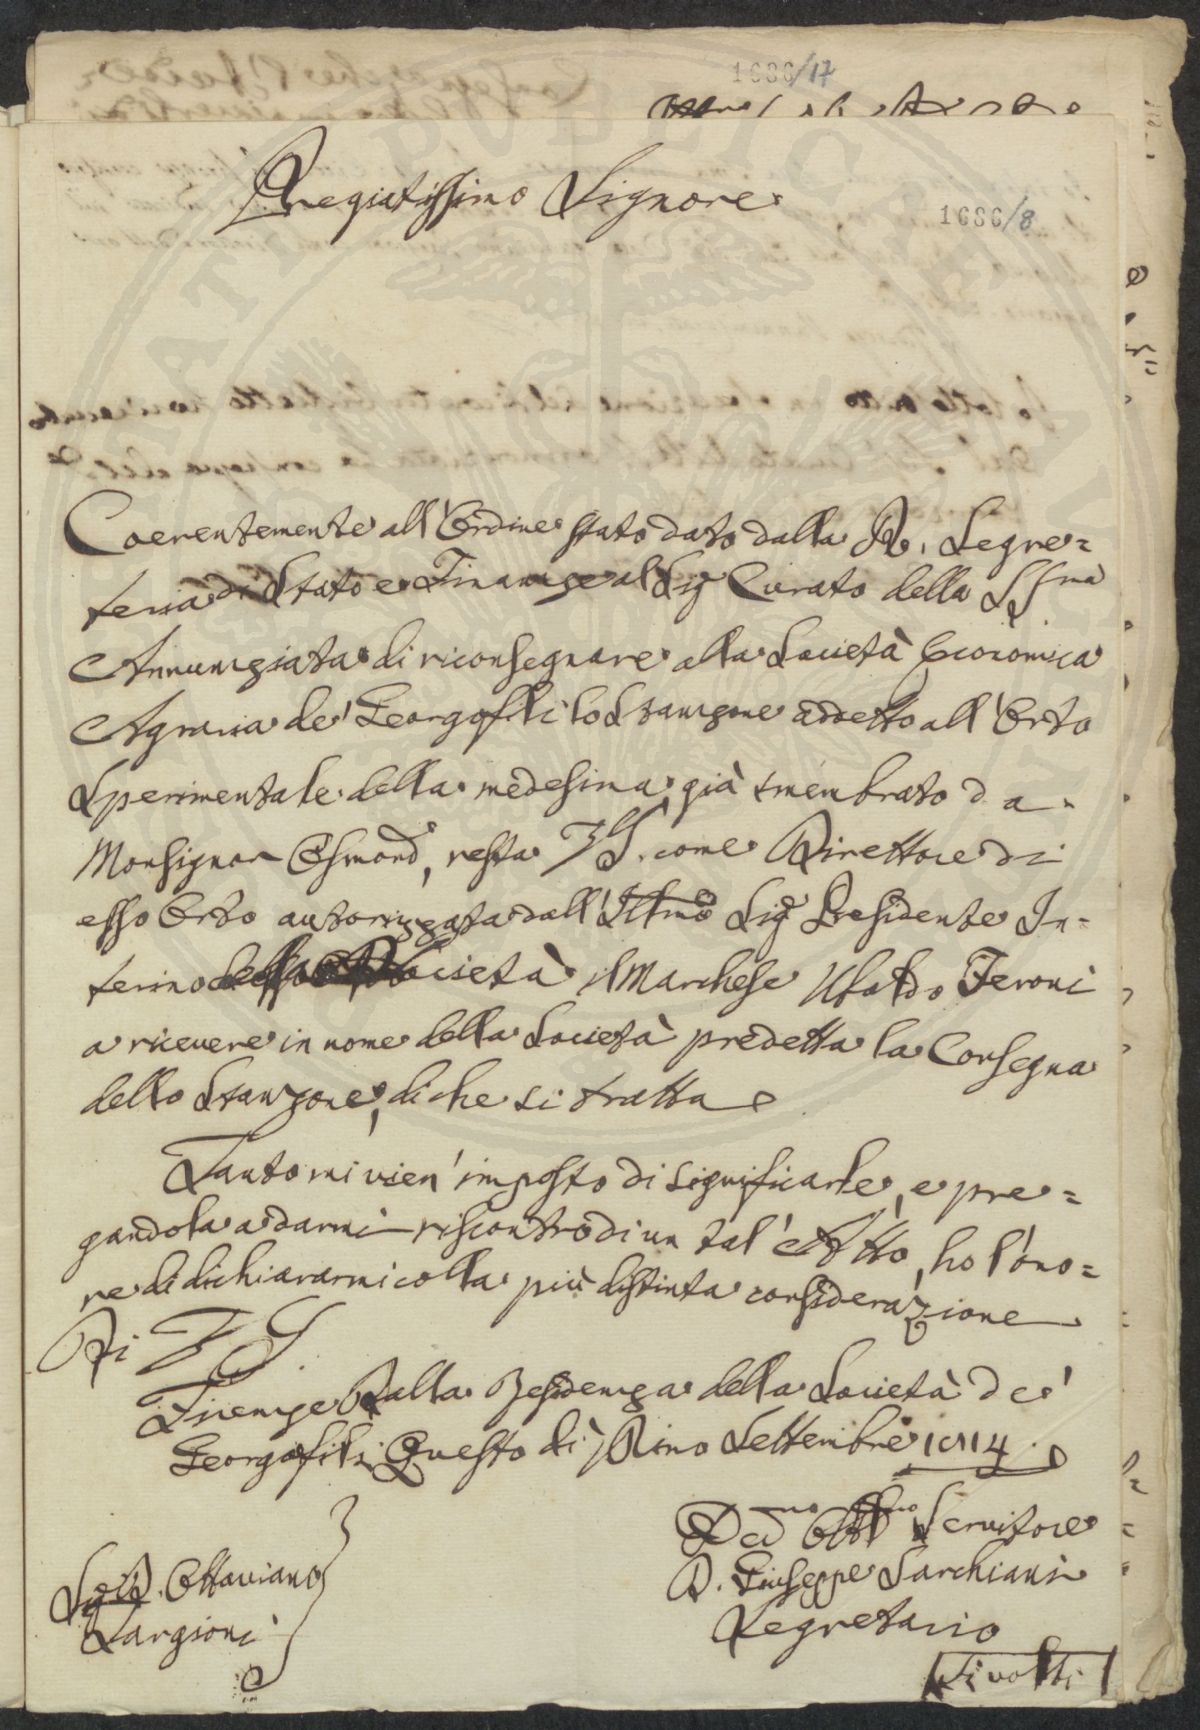 1686/17
Pregiatissimo Signore
1686/8
Coerentemente all'Ordine stato dato dalla R. Segre=
teria di Stato e Finanze al Sig Curato della SSma
Annunziata di riconsegnare alla Società Economica
Agraria de' Georgofili lo Stanzone addetto all'Orto
Sperimentale della medesima, già smembrato da
Monsignor Osmond, resta VS. come Direttore di
esso Orto autorizzata dall'Illmo Sig Presidente In=
terino della Società il Marchese Ubaldo Feroni
a ricevere in nome della Società predetta la Consegna
dello Stanzone, di che si tratta
Tanto mi vien' imposto di significarle, e pre=
gandola a darmi riscontro di un tal' Atto, ho l'ono=
re di dichiararmi colla più distinta considerazione
Di VS
Firenze Dalla Residenza della Società de'
Georgofili Questo dì Primo Settembre 1814
Devmo Obblmo Servitore
D. Giuseppe Sarchiani
Segretario
Sig. Ottaviano
Targioni
Si volti